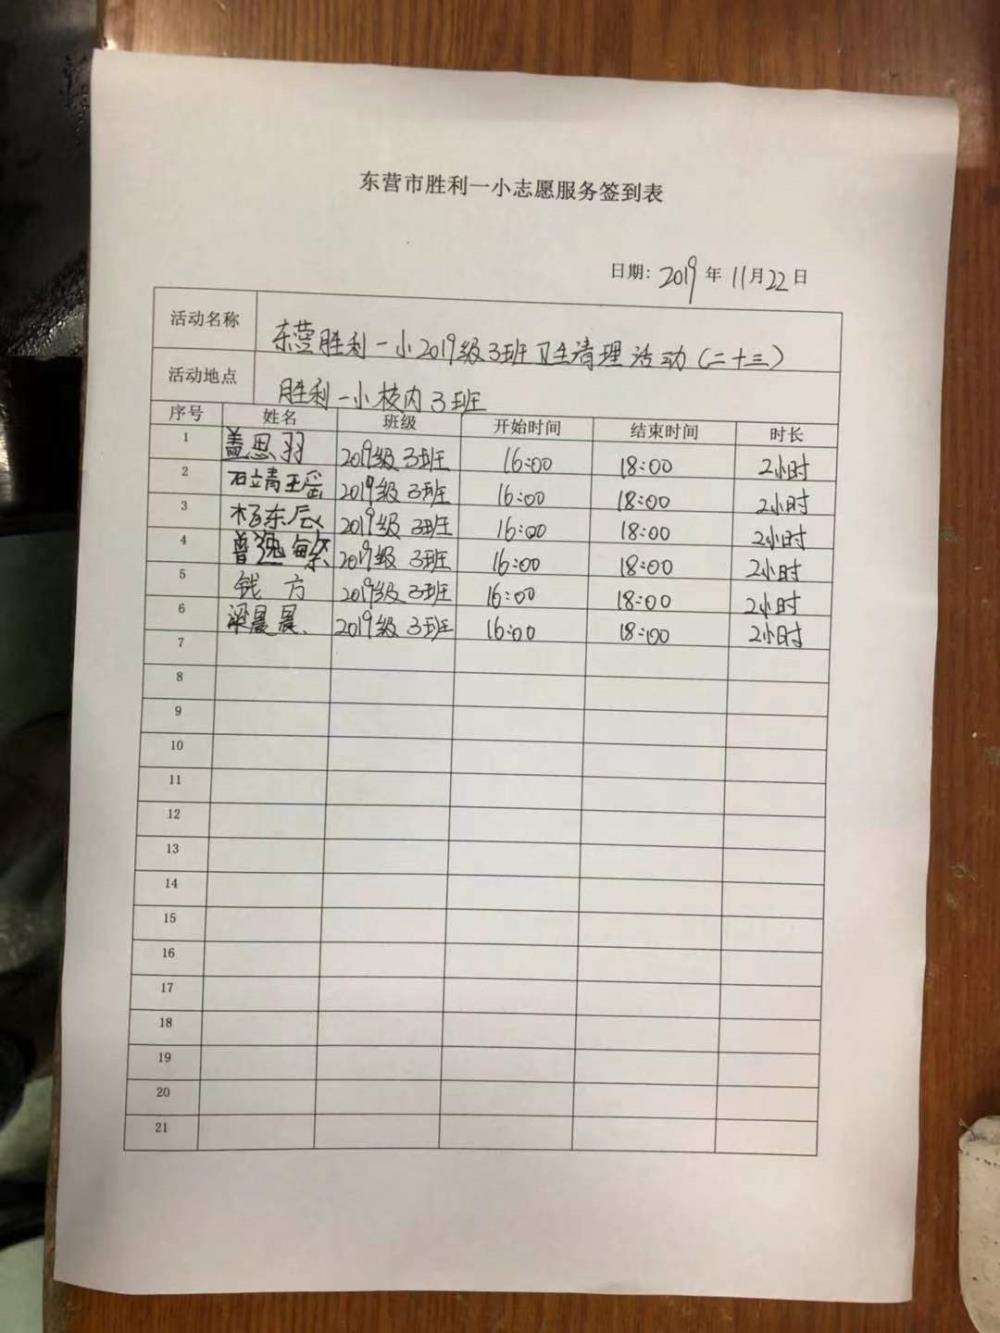 东营市胜利一小志愿服务签到表
日期: 2019 年 11月22日
活动名称 东营胜利一小2019级3班卫生清理活动(二十三)
活动地点 胜利一小校内3班
序号 姓名 班级 开始时间 结束时间 时长
1 盖思羽 2019级3班 16:00 18:00 2小时
2 石靖瑶 2019级3班 16:00 18:00 2小时
3 杨东辰 2019级3班 16:00 18:00 2小时
4 曾逸繁 2019级3班 16:00 18:00 2小时
5 钱方 2019级3班 16:00 18:00 2小时
6 梁晨晨 2019级3班 16:00 18:00 2小时
7
8
9
10
11
12
13
14
15
16
17
18
19
20
21